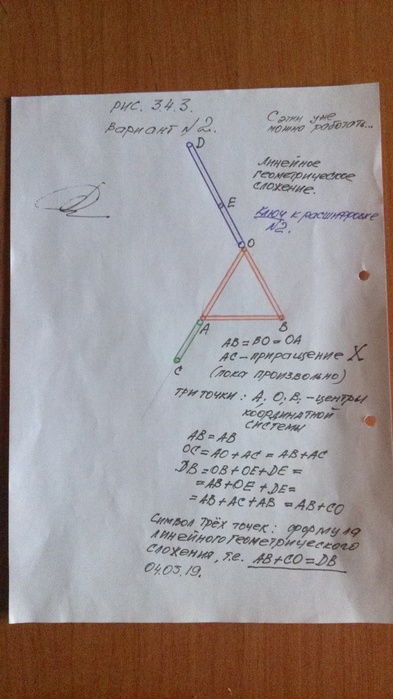 рис. 3.4.3.
Вариант №2.
С этим уже
можно работать...
Линейное
геометрическое
сложение.
Ключ к расшифровке
№2.
D
E
O
A
B
C
AB = BO = OA
AC – приращение X
(пока произвольно)
Три точки: A, O, B, – центры
координатной
системы
AB = AB
OC = AO + AC = AB + AC
DB = OB + OE + DE =
= AB + OE + DE =
= AB + AC + AB = AB + CO
Символ трёх точек: формула
линейного геометрического
сложения, т.е. AB + CO = DB
04.03.19.